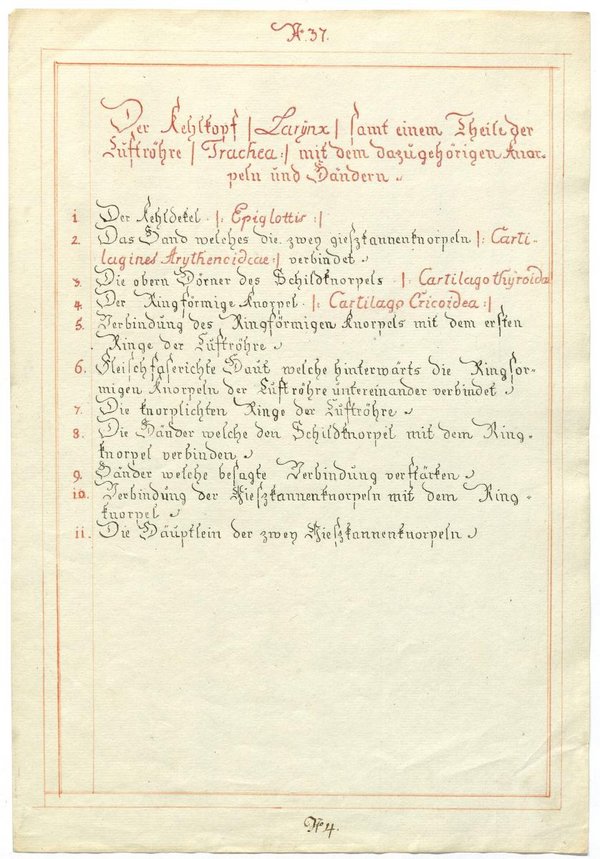 No. 37.
Der Kehlkopf |Larÿnx| samt einem Theile der
Luftröhre |Trachea:| mit dem dazugehörigen Knor-
peln und Bändern.
1. Der Kehldekel. |: Epiglottis:|
2. Das Band welches die zwey gieszkannenknorpeln |: Carti-
lagines Arythenoideae:| verbindet.
3. Die obern Hörner des Schildknorpels. |: Cartilago thÿroida
4. Der Ringförmige Knorpel. |: Cartilago Cricoidea:|
5. Verbindung des Ringförmigen Knorpels mit dem ersten
Ringe der Luftröhre.
6. Fleischfaserichte Haut welche hinterwärts die Ringför-
migen Knorpeln der Luftröhre untereinander verbindet.
7. Die knorplichten Ringe der Luftröhre.
8. Die Bänder welche den Schildknorpel mit dem Ring-
knorpel verbinden.
9. Bänder welche besagte Verbindung verstärken.
10. Verbindung der Gieszkannenknorpeln mit dem Ring-
knorpel.
11. Die Häuptlein der zwey Gieszkannenknorpeln.
No. 4.